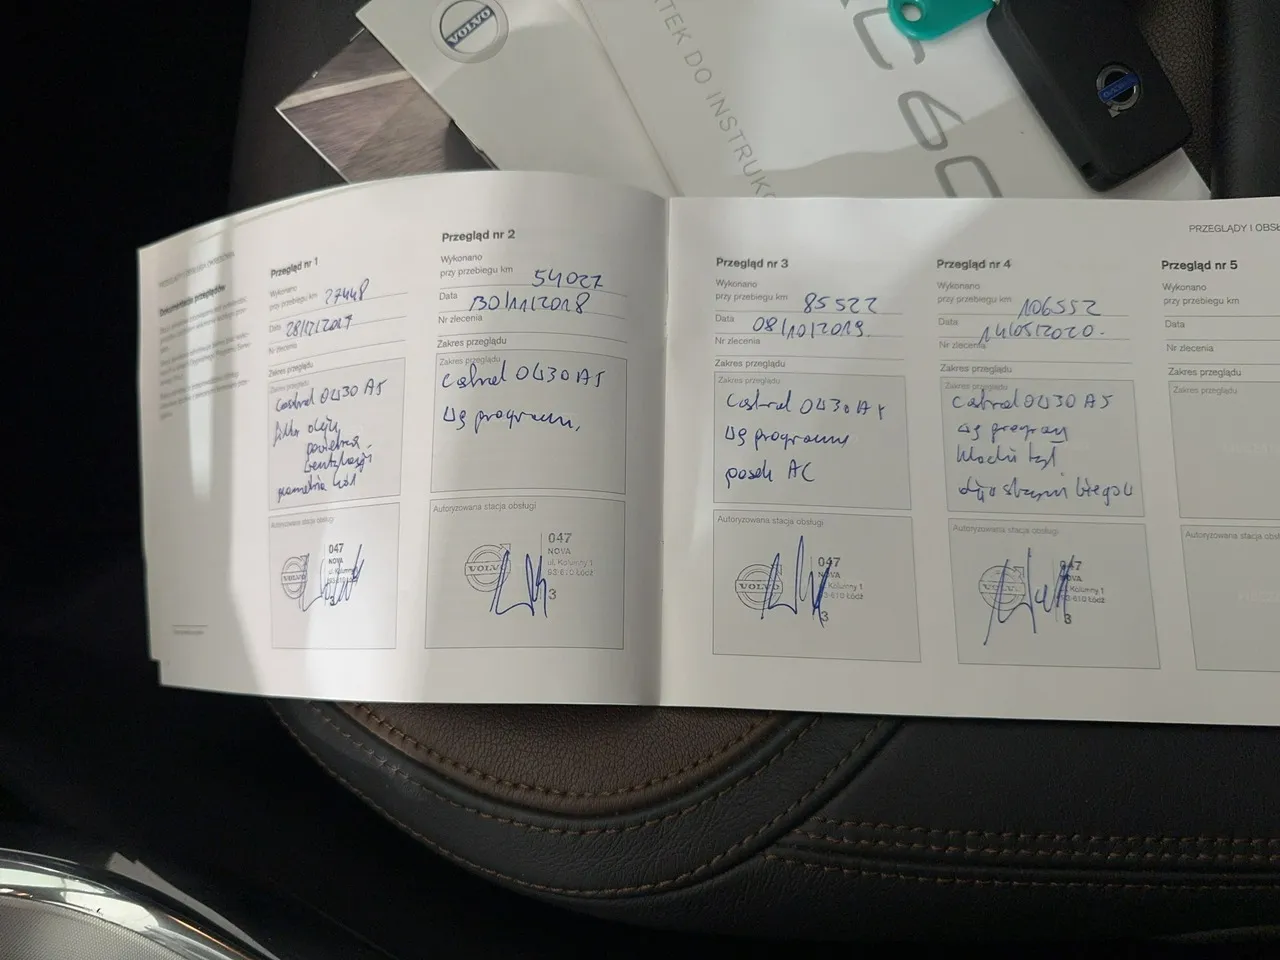 VOLVO
ATEK DO INSTRUKC
XC 60
Przegląd nr 1
Wykonano
przy przebiegu km 27448
Data 28/12/2017
Nr zlecenia
Zakres przeglądu
Zakres przeglądu
Castrol 0W30 A5
filtr oleju
powietrza
wentylacji
geometria kół
Autoryzowana stacja obsługi
VOLVO
047
NOVA
ul. Kolumny 1
93-610 Łódź
3
Przegląd nr 2
Wykonano
przy przebiegu km 54027
Data 30/11/2018
Nr zlecenia
Zakres przeglądu
Zakres przeglądu
Castrol 0W30 A5
wg programu,
Autoryzowana stacja obsługi
VOLVO
047
NOVA
ul. Kolumny 1
93-610 Łódź
3
PRZEGLĄDY I OBSŁ
Przegląd nr 3
Wykonano
przy przebiegu km 85522
Data 08/10/2019.
Nr zlecenia
Zakres przeglądu
Zakres przeglądu
Castrol 0W30 A5
wg programu
pasek AC
Autoryzowana stacja obsługi
VOLVO
047
NOVA
ul. Kolumny 1
93-610 Łódź
3
Przegląd nr 4
Wykonano
przy przebiegu km 106552
Data 14/05/2020.
Nr zlecenia
Zakres przeglądu
Zakres przeglądu
Castrol 0W30 A5
wg programu
klocki tył
olej skrzyni biegów
Autoryzowana stacja obsługi
VOLVO
047
NOVA
ul. Kolumny 1
93-610 Łódź
3
Przegląd nr 5
Wykonano
przy przebiegu km
Data
Nr zlecenia
Zakres przeglądu
Zakres przeglądu
Autoryzowana stacja obsł